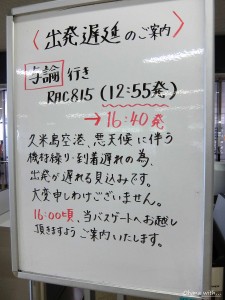 〈出発遅延のご案内〉
与論 行き
RAC815 (12:55発)
→16:40発
久米島空港、悪天候に伴う
機材繰り・到着遅れの為、
出発が遅れる見込みです。
大変申しわけございません。
16:00頃、当バスゲートへお越し
頂きますようご案内いたします。